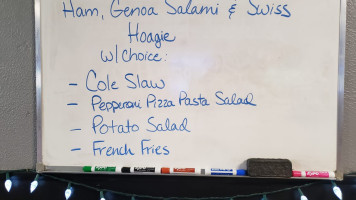 Ham, Genoa Salami & Swiss
Hoagie
w/ Choice:
- Cole Slaw
- Pepperoni Pizza Pasta Salad
- Potato Salad
- French Fries